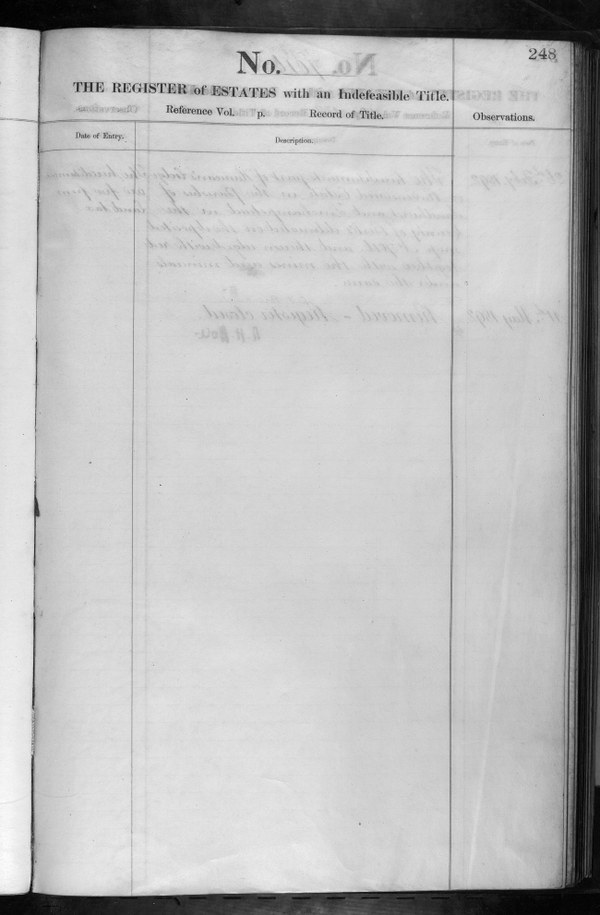 248
No.
THE REGISTER of ESTATES with an Indefeasible Title.
Reference Vol. p. Record of Title.
Observations.
Date of Entry.
Description.